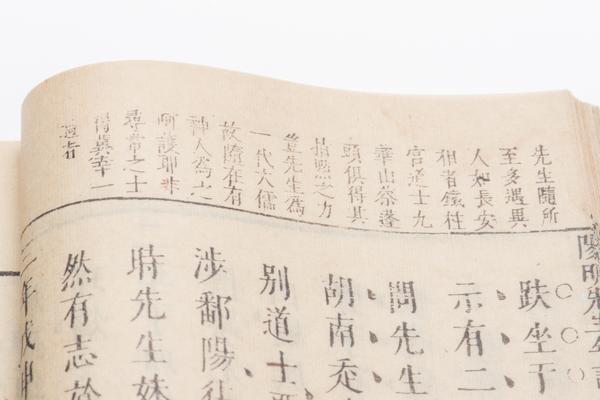 先生隨所
至多遇異
人如長安
相者鐵柱
宮道士九
華山蔡蓬
頭俱得其
指點之力
豈先生為
一代大儒
故隨在有
神人為之
呵護耶非
尋常之士
得冀幸一
遇者
陽明先生年譜
趺坐于
示有二
問先生
胡南
別道士
涉鄱陽
時先生
然有志於
年戊申